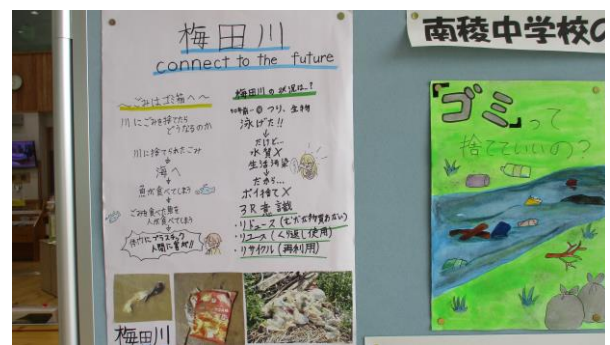 梅田川
connect to the future
～ごみはゴミ箱へ～
川にごみを捨てたら
どうなるのか
川に捨てられたごみ
↓
海へ
↓
魚が食べてしまう
↓
ごみを食べた魚を
人が食べてしまう
↓
体内にプラスチック
人間に害が!!
梅田川の状況は…?
つり、生物
泳げた!!
↓
だけど…
水質×
生活汚染
↓
だから…
ポイ捨て×
3R意識
・リデュース(むだな物質おさい)
・リユース(くり返し使用)
・リサイクル(再利用)
梅田川
南稜中学校の
「ゴミ」って
捨てていいの?